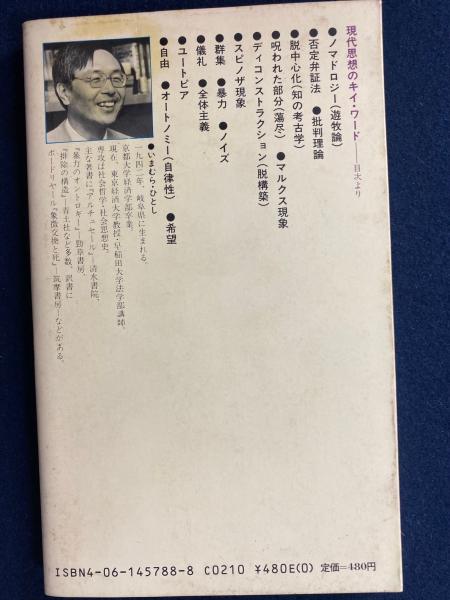 現代思想のキイ・ワード——目次より
●ノマドロジー(遊牧論)
●否定弁証法 ●批判理論
●脱中心化(知の考古学)
●呪われた部分(蕩尽) ●マルクス現象
●ディコンストラクション(脱構築)
●スピノザ現象
●群集 ●暴力 ●ノイズ
●儀礼 ●全体主義
●ユートピア
●自由 ●オートノミー(自律性) ●希望
●いまむら・ひとし
一九四二年、岐阜県に生まれる。
京都大学経済学部卒業。
現在、東京経済大学教授・早稲田大学法学部講師。
専攻は社会哲学・社会思想史。
主な著書に『アルチュセール』—清水書院、
『暴力のオントロギー』—勁草書房、
『排除の構造』—青土社など多数。訳書に
ボードリヤール『象徴交換と死』—筑摩書房—などがある。
ISBN4-06-145788-8 C0210 ¥480E(0) 定価=480円